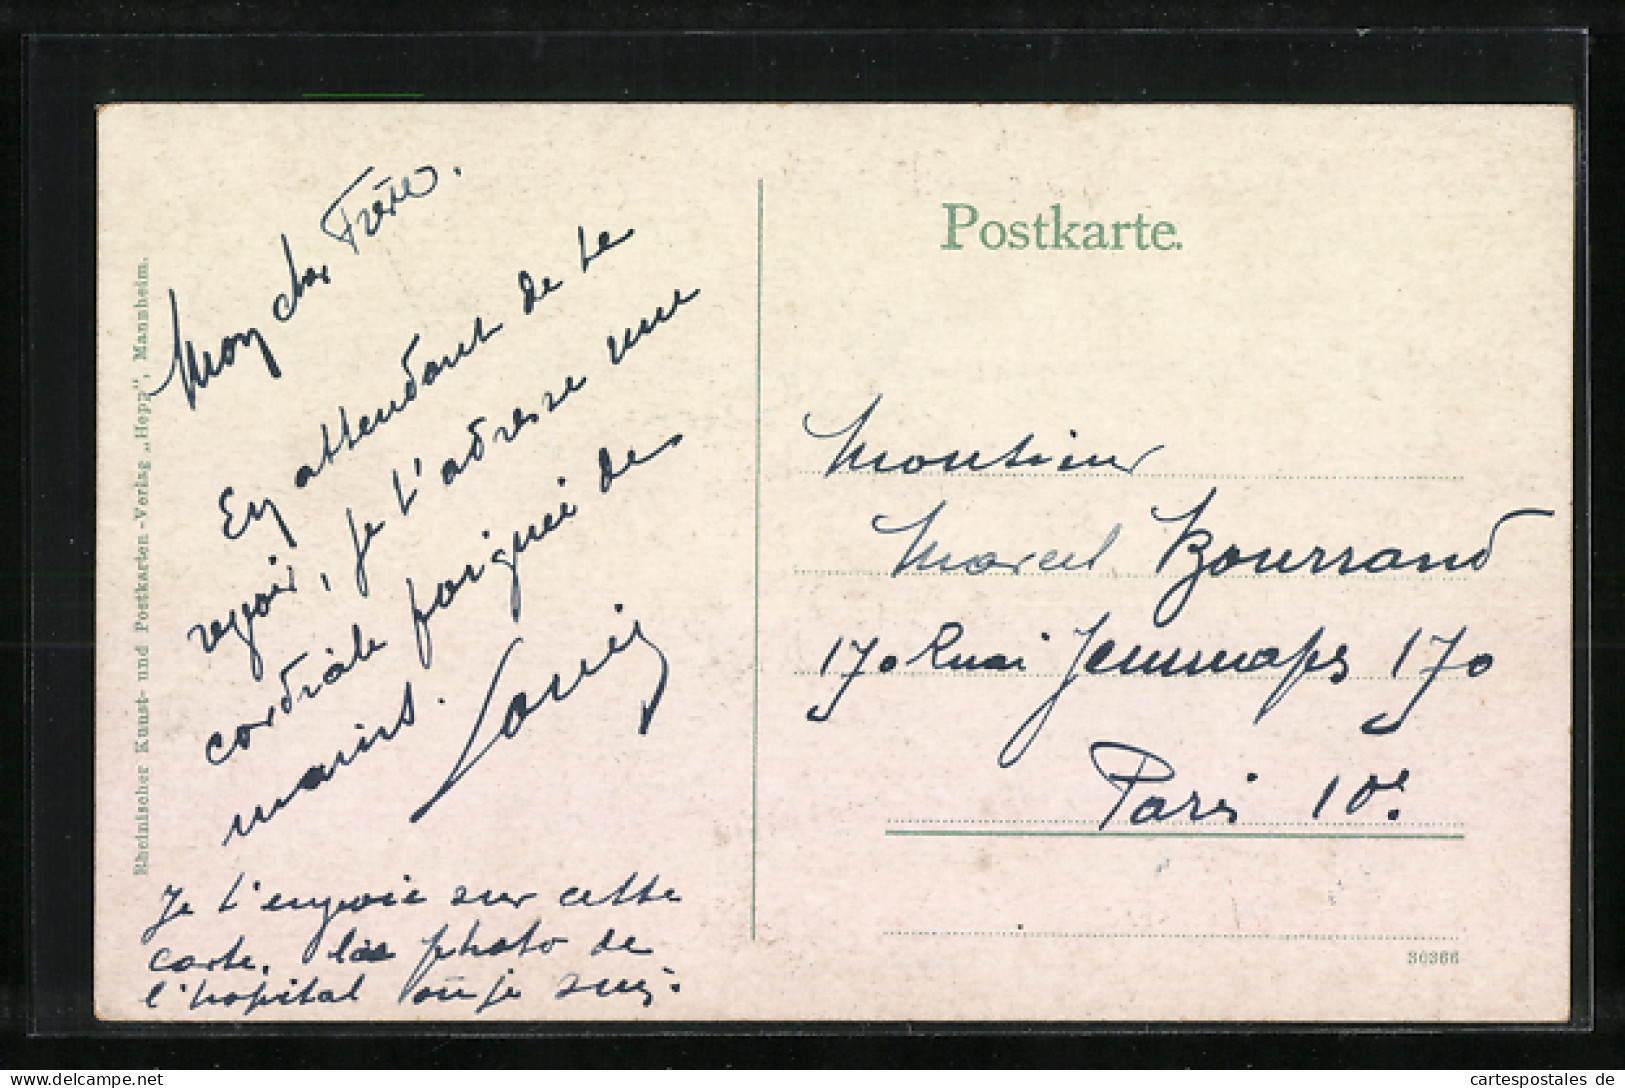 Mon cher Frère.
En attendant de te
revoir, je t'adresse une
cordiale poignée de
mains. Louis
Je t'envoie sur cette
carte, la photo de
l'hopital où je suis.
Rheinischer Kunst- und Postkarten-Verlag „Hepp", Mannheim.
Postkarte.
Monsieur
Marcel Bourrand
170 Quai Jemmapes 170
Paris 10e.
30366
www.cartespostales.de
cartespostales de